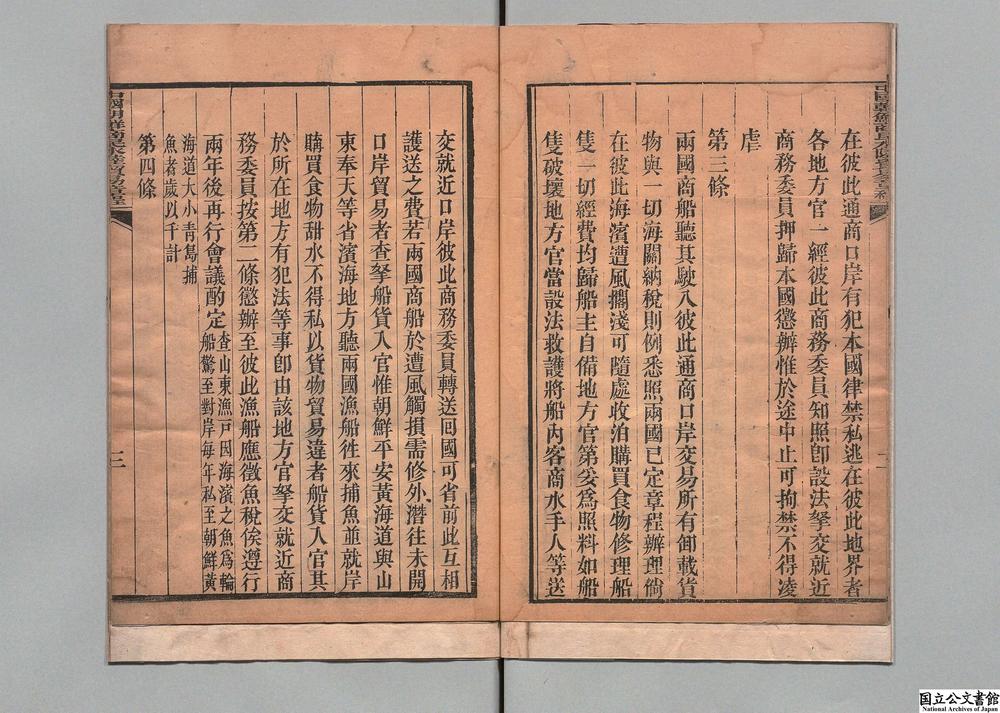 在彼此通商口岸有犯本國律禁私逃在彼此地界者
各地方官一經彼此商務委員知照卽設法拏交就近
商務委員押歸本國懲辦惟於途中止可拘禁不得凌
虐
第三條
兩國商船聽其駛入彼此通商口岸交易所有卸載貨
物與一切海關納稅則例悉照兩國已定章程辦理倘
在彼此海濱遭風擱淺可隨處收泊購買食物修理船
隻一切經費均歸船主自備地方官第妥爲照料如船
隻破壞地方官當設法救護將船內客商水手人等送
二
交就近口岸彼此商務委員轉送回國可省前此互相
護送之費若兩國商船於遭風觸損需修外潛往未開
口岸貿易者查拏船貨入官惟朝鮮平安黃海道與山
東奉天等省濱海地方聽兩國漁船徃來捕魚並就岸
購買食物甜水不得私以貨物貿易違者船貨入官其
於所在地方有犯法等事卽由該地方官拏交就近商
務委員按第二條懲辦至彼此漁船應徵魚稅俟遵行
兩年後再行會議酌定
查山東漁戶因海濱之魚爲輪
船驚至對岸每年私至朝鮮黃
海道大小青島捕
魚者歲以千計
第四條
三
国立公文書館
National Archives of Japan